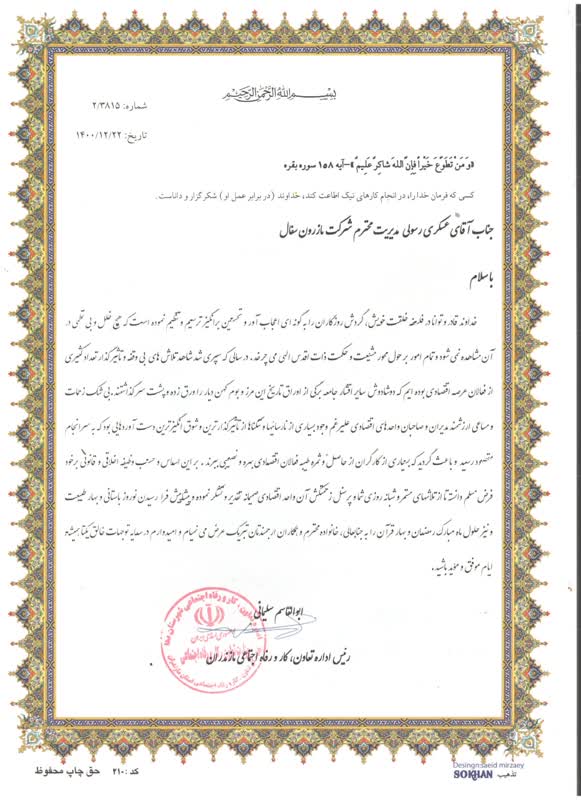 بسم الله الرحمن الرحیم
شماره: ۲/۳۸۱۵
تاریخ: ۱۴۰۰/۱۲/۲۲
«وَ مَنْ تَطَوَّعَ خَیْراً فَإِنَّ اللهَ شاکِرٌ عَلیمٌ»-آیه ۱۵۸ سوره بقره
کسی که فرمان خدا را، در انجام کارهای نیک اطاعت کند، خداوند (در برابر عمل او) شکرگزار و داناست.
جناب آقای عسکری رسولی مدیریت محترم شرکت مازرون سفال
با سلام
خداوند قادر و توانا در فلسفه خلقت خویش، گردش روزگاران را به گونه ای اعجاب آور و تحسین برانگیز ترسیم و تنظیم نموده است که هیچ خلل و بی نظمی در
آن مشاهده نمی شود و تمام امور بر حول محور مشیت و حکمت ذات اقدس الهی می چرخد. در سالی که سپری شد شاهد تلاش های بی وقفه و تأثیرگذار تعداد کثیری
از فعالان عرصه اقتصادی بوده ایم که دوشادوش سایر اقشار جامعه برگی از اوراق تاریخ این مرز و بوم کهن دیار را ورق زده و پشت سر گذاشتند. بی شک زحمات
و مساعی ارزشمند مدیران و صاحبان واحدهای اقتصادی علیرغم وجود بسیاری از نارسائیها و تنگناها از تأثیرگذارترین و شوق انگیزترین دست آوردهایی بود که به سرانجام
مقصود رسید و باعث گردید که بسیاری از کارگران از حاصل و ثمره طیبه فعالان اقتصادی بهره و نصیبی ببرند. بر این اساس و حسب وظیفه اخلاقی و قانونی بر خود
فرض مسلم دانسته تا از تلاشهای مستمر و شبانه روزی شما و پرسنل زحمتکش آن واحد اقتصادی صمیمانه تقدیر و تشکر نموده و پیشاپیش فرا رسیدن نوروز باستانی و بهار طبیعت
و نیز حلول ماه مبارک رمضان و بهار قرآن را به جنابعالی، خانواده محترم و همکاران ارجمندتان تبریک عرض می نمایم و امیدوارم در سایه توجهات خالق یکتا همیشه
ایام موفق و مؤید باشید.
ابوالقاسم سلیمانی
رئیس اداره تعاون، کار و رفاه اجتماعی مازندران
کد: ۲۱۰ حق چاپ محفوظ
Desingn:saeid mirzaey
SOKHAN تذهیب